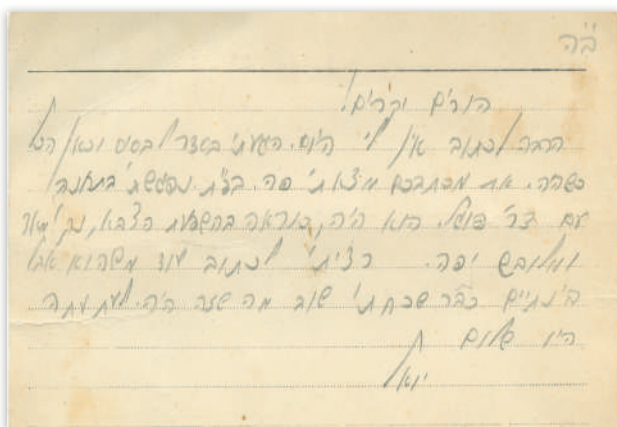 ב"ה
הורים יקרים!
הרבה לכתוב אין לי היום. הגעתי בסדר לבסיס וכאן הכל
כשהיה. את מכתבכם מצאתי פה. בת"א נפגשתי
עם דר' פוגל. הוא היה, כנראה בהשפעת הצבא, נקי מאד
ומלובש יפה. רציתי לכתוב עוד משהוא אבל
בינתיים כבר שכחתי שוב מה שזה היה. לעת עתה
היו שלום
יואל